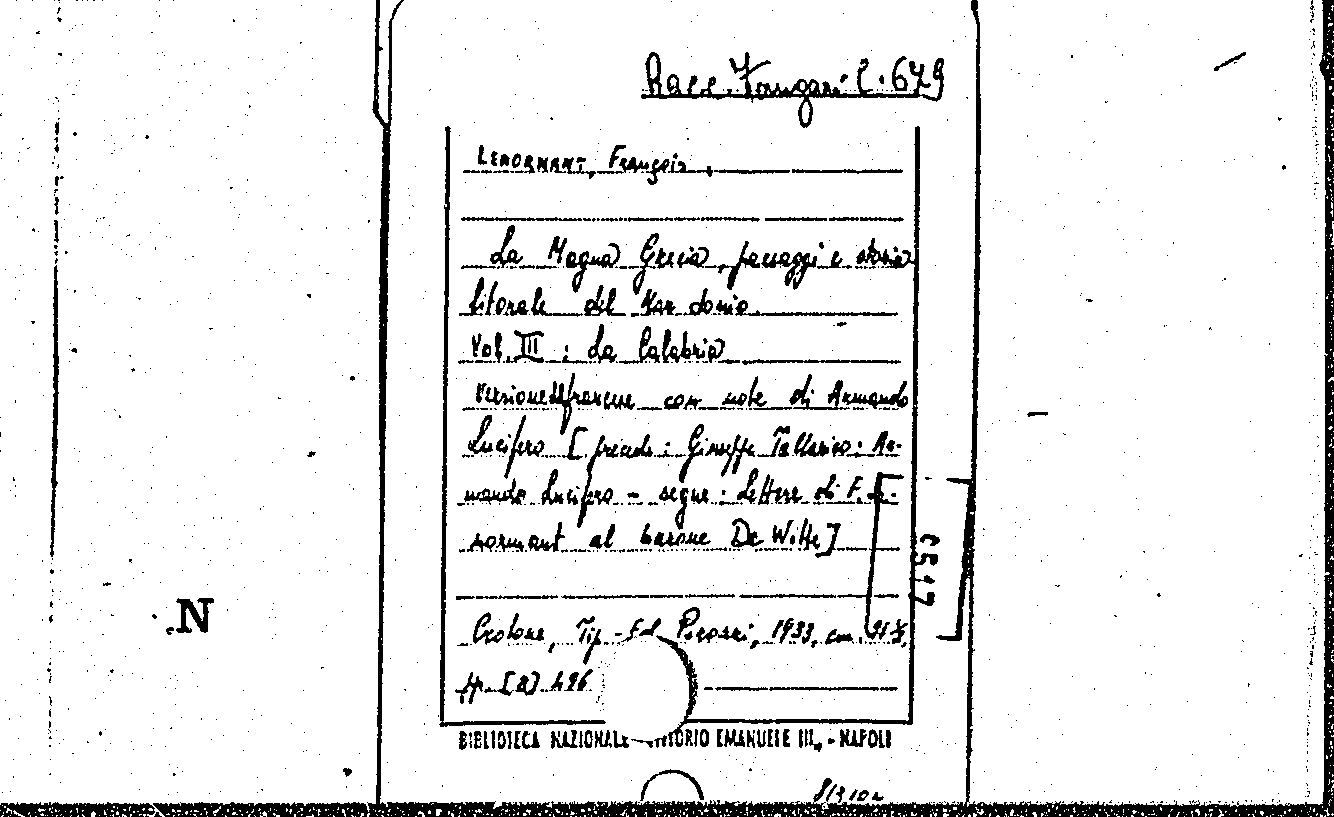 Racc. Fongari C. 679
LENORMANT, François,
La Magna Grecia, paesaggi e storia
litorale del Mar Jonio.
Vol. III : La Calabria
con note di Armando
Lucifero [precede: Giuseppe Tallarico: Ar-
mando Lucifero - segue: Lettere di F. Le-
normant al barone De Witte]
Crotone, Tip.-Ed. Pirozzi, 1933, cm.
pp. [8] 496
BIBLIOTECA NAZIONALE VITTORIO EMANUELE III, - NAPOLI
N